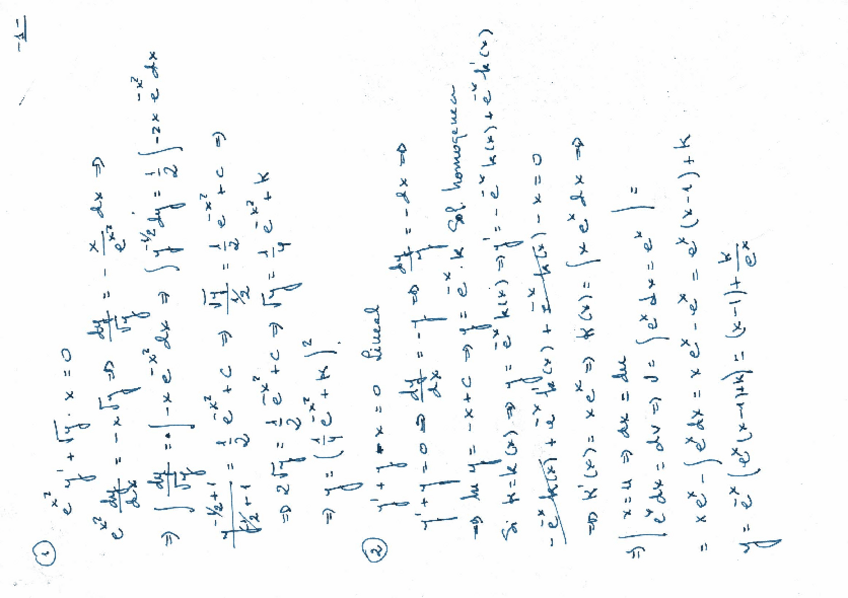 -1-
① e^{x²} y' + √y · x = 0
e^{x²} dy/dx = -x√y ⇒ dy/√y = - x/e^{x²} dx ⇒
⇒ ∫ dy/√y = ∫ -x e^{-x²} dx ⇒ ∫ y^{-1/2} dy = 1/2 ∫ -2x e^{-x²} dx
y^{-1/2+1}/(-1/2+1) = 1/2 e^{-x²} + c ⇒ √y/(1/2) = 1/2 e^{-x²} + c ⇒
⇒ 2√y = 1/2 e^{-x²} + c ⇒ √y = 1/4 e^{-x²} + k
⇒ y = (1/4 e^{-x²} + k)²
② y' + y - x = 0 lineal
y' + y = 0 ⇒ dy/dx = -y ⇒ dy/y = -dx ⇒
⇒ ln y = -x + c ⇒ y = e^{-x} · k Sol. homogenea
Si k = k(x) ⇒ y = e^{-x} k(x) ⇒ y' = -e^{-x} k(x) + e^{-x} k'(x)
-e^{-x} k(x) + e^{-x} k'(x) + e^{-x} k(x) - x = 0
⇒ k'(x) = x e^x ⇒ k(x) = ∫ x e^x dx ⇒
⇒ | x = u ⇒ dx = du
e^x dx = dv ⇒ v = ∫ e^x dx = e^x | =
= x e^x - ∫ e^x dx = x e^x - e^x = e^x (x-1) + k
y = e^{-x} (e^x (x-1) + k) = (x-1) + k/e^x